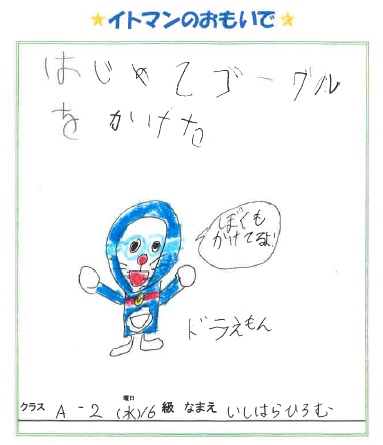 ★イトマンのおもいで★
はじめてゴーグル
をかけた。
ぼくも
かけてるよ!
ドラえもん
クラス A-2 曜日(水)16級 なまえ いしはらひろむ